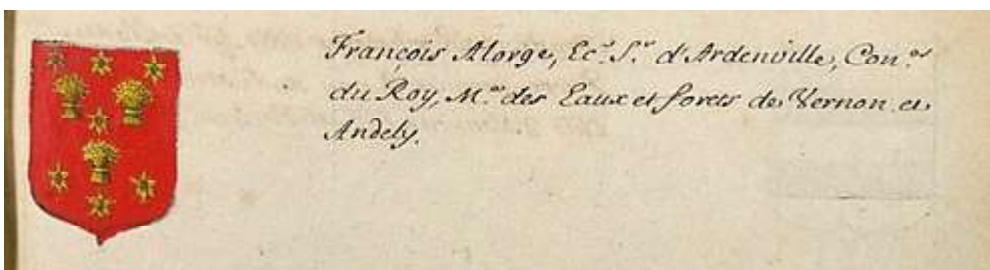 François Alorge, Ec.r S.r d'Ardenville, Con.er
du Roy, M.re des Eaux et forets de Vernon et
Andely.